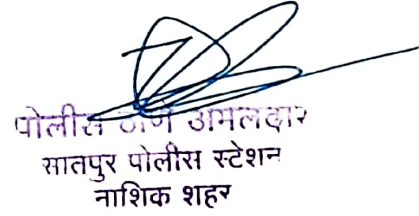 पोलीस ठाणे अमलदार
सातपुर पोलीस स्टेशन
नाशिक शहर